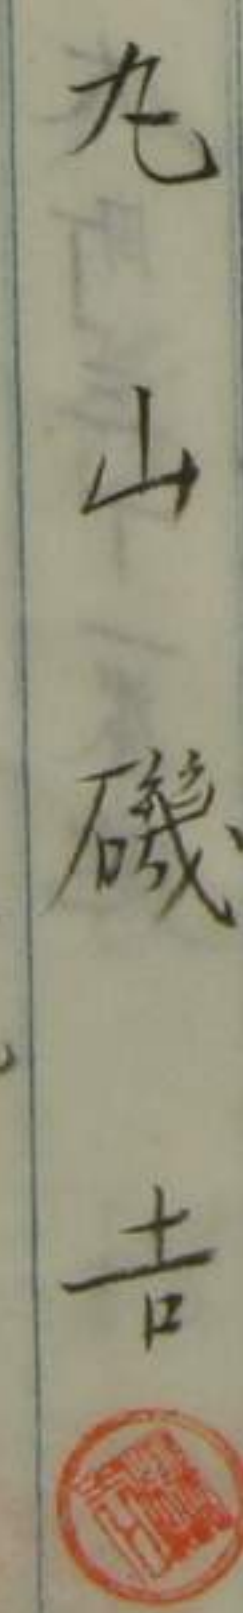 丸山磯吉